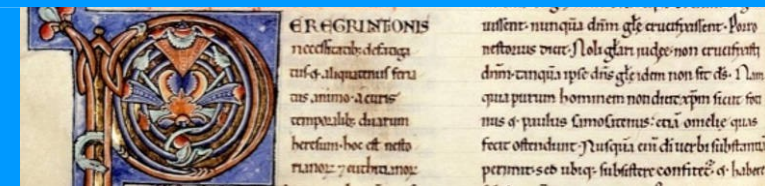 PEREGRINTONIS
necessitatib; defatiga
tus &. aliquatenus feria
tus animo. a curis
temporalib; duarum
heresum. hoc est nesto
rianoꝝ ⁊ euthicianoꝝ
uissent. nunquā dnm̄ glē crucifixissent. Porro
nestorius dicit. Noli glari iudee. non crucifixisti
dnm̄. tanquā ipse dn̄s glē idem non sit ds̄. Nam
quia purum hominem non dicit xp̄m sicut foti
nus &. paulus samositenus: etiā omelie quas
fecit ostendunt. Nusquā eni di uerbi substantiā
perimit. sed ubiq; subsistere confitet̄ &. habere